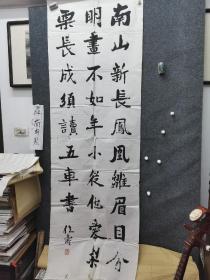 南山新長鳳凰雛眉目分
明畫不如年小從他愛梨
栗長成須讀五車書